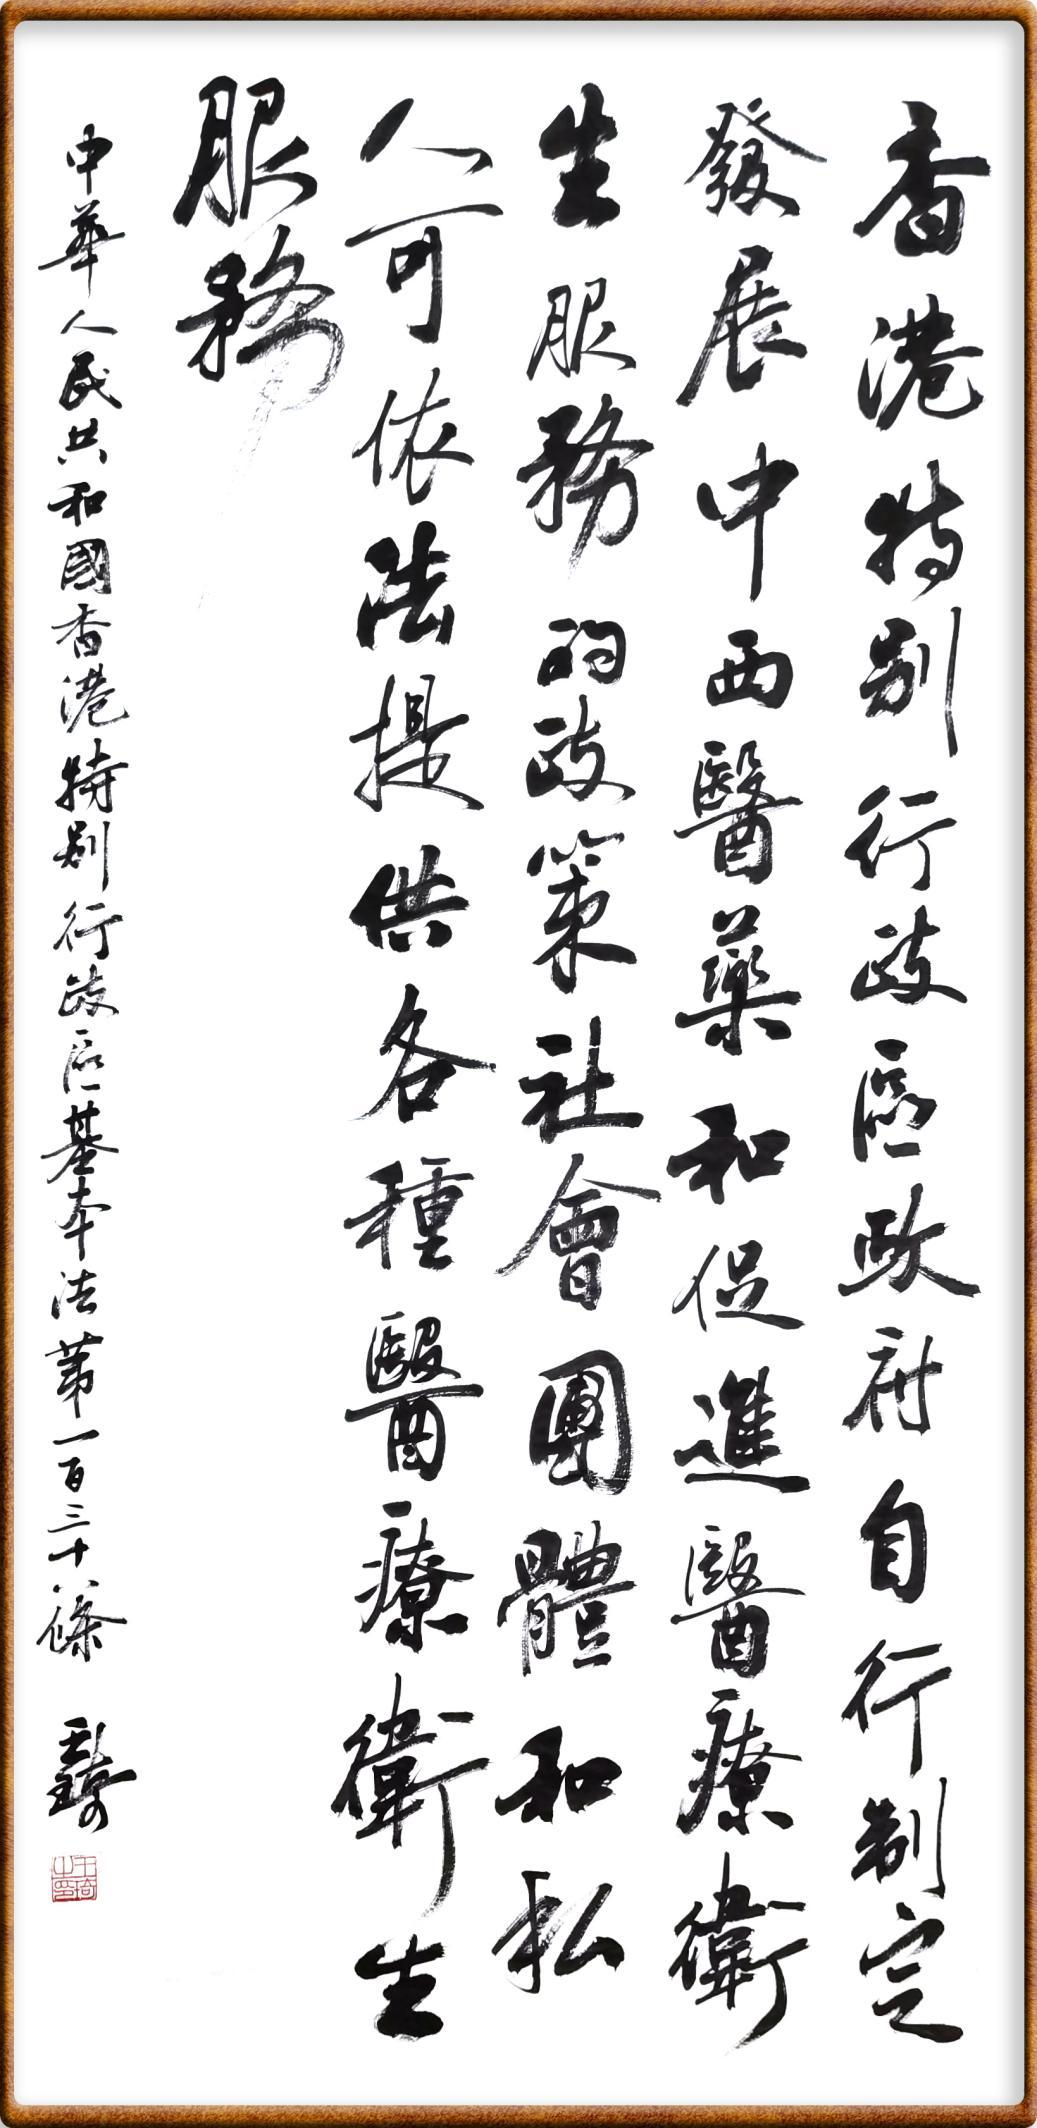 香港特别行政區政府自行制定
發展中西醫藥和促進醫療衛
生服務的政策社會團體和私
人可依法提供各種醫療衛生
服務
中華人民共和國香港特别行政區基本法第一百三十八條